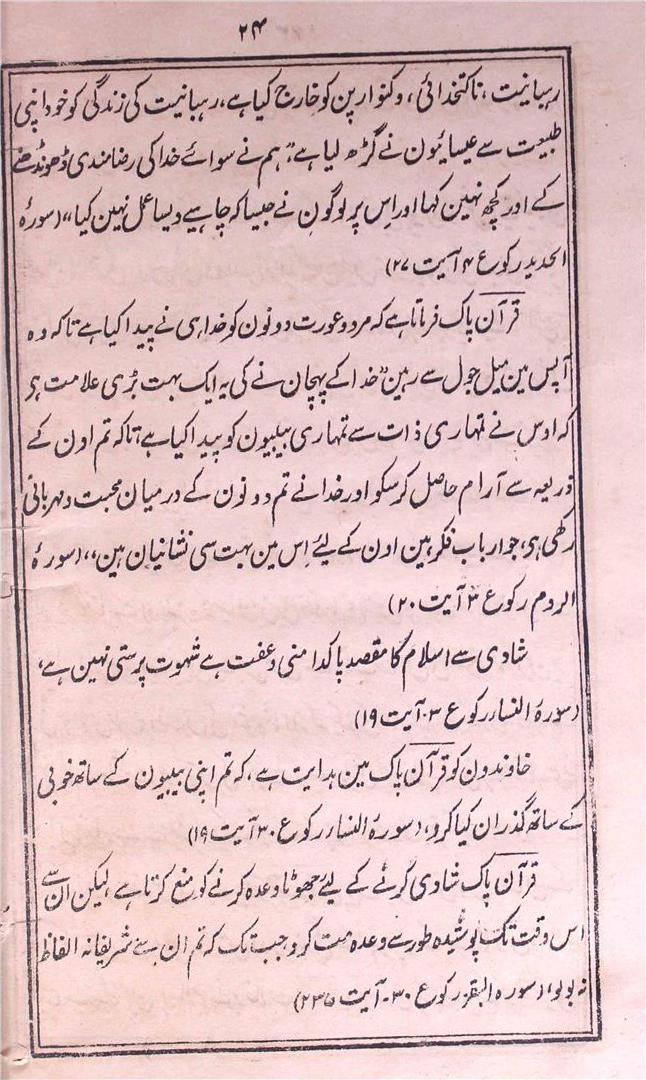 ۲۴
رہبانیت، ناکتخدائی، وکنوارپن کو خارج کیا ہے، رہبانیت کی زندگی کو خود اپنی
طبیعت سے عیسائیون نے گڑھ لیا ہے”ہم نے سوائے خدا کی رضامندی ڈھونڈھنے
کے اور کچھ نہین کہا اور اِس پر لوگون نے جیسا کہ چاہیے ویسا عمل نہین کیا“ (سورۂ
الحدید رکوع ۴ آیت ۲۷)
قرآن پاک فرماتا ہے کہ مرد وعورت دونون کو خدا ہی نے پیدا کیا ہے تاکہ وہ
آپس مین میل جول سے رہین”خدا کے پہچاننے کی یہ ایک بہت بڑی علامت ہی
کہ اوس نے تمہاری ذات سے تمہاری بیبیون کو پیدا کیا ہے تاکہ تم اون کے
ذریعہ سے آرام حاصل کرسکو اور خدا نے تم دونون کے درمیان محبت ومہربانی
رکھی ہی، جو ارباب فکر ہین اون کے لیٔے اِس مین بہت سی نشانیان ہین“ (سورۂ
الروم رکوع ۳ آیت ۲۰)
شادی سے اسلام کا مقصد پاکدامنی وعفت ہے شہوت پرستی نہین ہے،
(سورۂ النساء رکوع ۳۔ آیت ۱۹)
خاوندون کو قرآن پاک مین ہدایت ہے، کہ تم اپنی بیبیون کے ساتھ خوبی
کے ساتھ گذران کیا کرو، (سورۂ النساء رکوع ۳۰ آیت ۱۹)
قرآن پاک شادی کرنے کے لیٔے جھوٹا وعدہ کرنے کو منع کرتا ہے لیکن ان سے
اس وقت تک پوشیدہ طور سے وعدہ مت کرو جب تک کہ تم ان سے شریفانہ الفاظ
نہ بولو، (سورہ البقر رکوع ۳۰۔ آیت ۲۳۵)